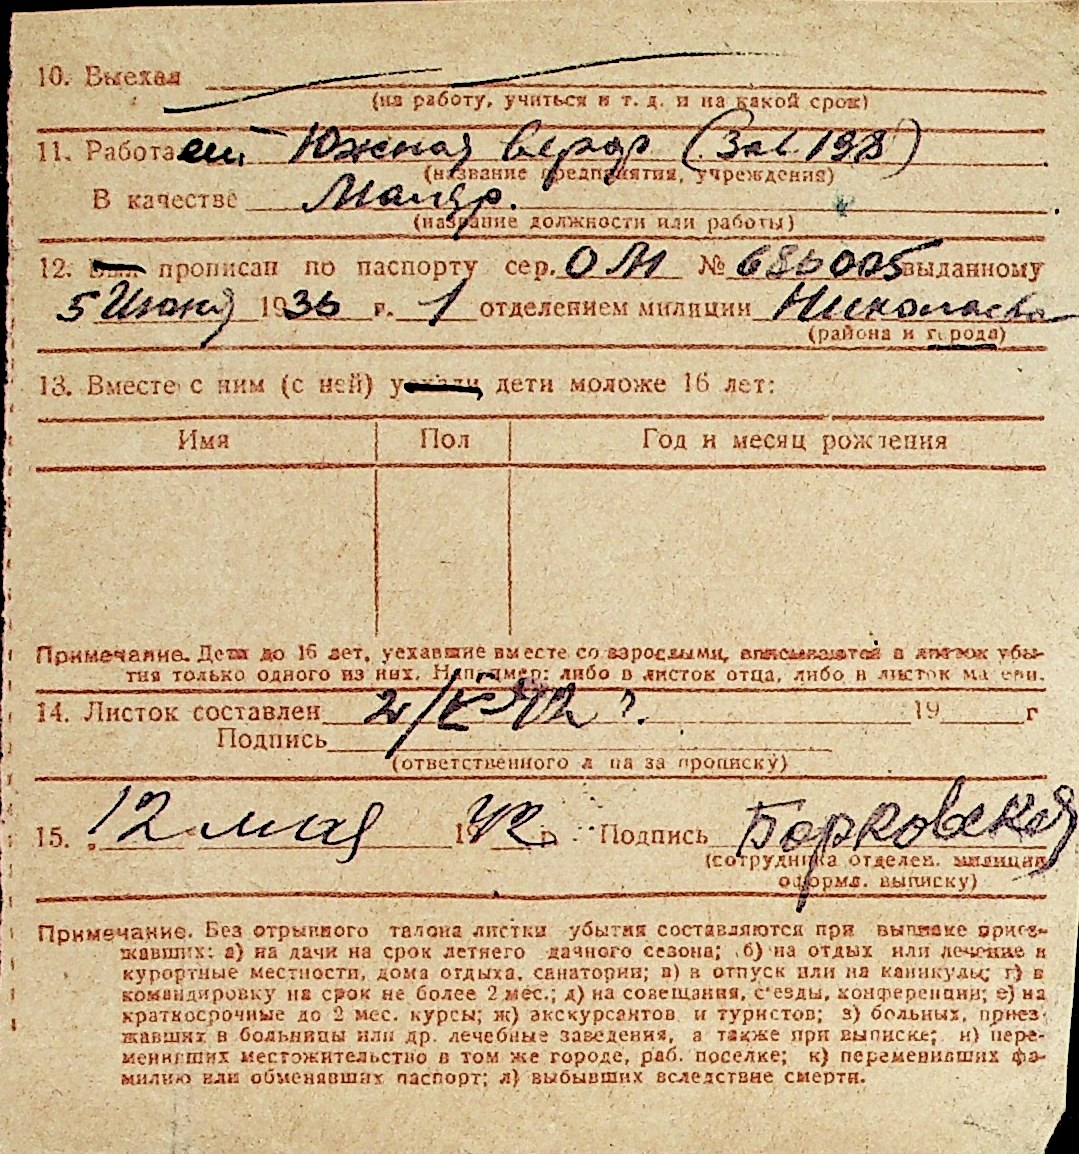 10. Выехал
(на работу, учиться и т. д. и на какой срок)
11. Работает Южная верфр (Зав. 198)
(название предприятия, учреждения)
В качестве Маляр.
(название должности или работы)
12. Был прописан по паспорту сер. ОМ № 686005 выданному
5 Июня 1936 г. 1 отделением милиции Николаева
(района и города)
13. Вместе с ним (с ней) уехали дети моложе 16 лет:
Имя Пол Год и месяц рождения
Примечание. Дети до 16 лет, уехавшие вместе со взрослыми, вписываются в листок убы-
тия только одного из них. Например: либо в листок отца, либо в листок матери.
14. Листок составлен 2/V 42 г. 19 г
Подпись
(ответственного лица за прописку)
15. 12 мая 1942 г. Подпись Борковская
(сотрудника отделен. милиции,
оформл. выписку)
Примечание. Без отрывного талона листки убытия составляются при выписке приез-
жавших: а) на дачи на срок летнего дачного сезона; б) на отдых или лечение в
курортные местности, дома отдыха, санатории; в) в отпуск или на каникулы; г) в
командировку на срок не более 2 мес.; д) на совещания, с'езды, конференции; е) на
краткосрочные до 2 мес. курсы; ж) экскурсантов и туристов; з) больных, приез-
жавших в больницы или др. лечебные заведения, а также при выписке; и) пере-
менивших местожительство в том же городе, раб. поселке; к) переменивших фа-
милию или обменявших паспорт; л) выбывших вследствие смерти.